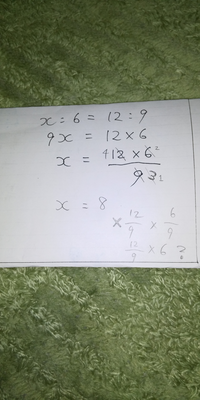 x : 6 = 12 : 9
9x = 12 × 6
x = 4 12 × 6 2
9 3 1
x = 8
× 12/9 × 6/9
12/9 × 6 ?